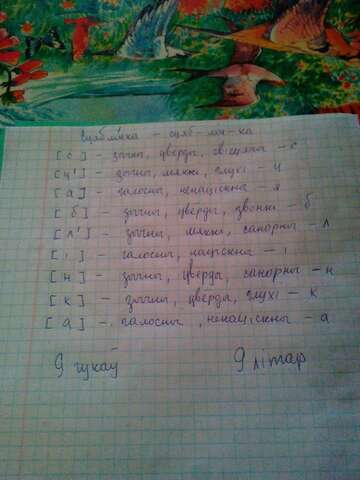 сцяблінка – сцяб-лін-ка
[с] – зычны, цверды, свісцячы – с
[ц'] – зычны, мяккі, глухі – ц
[а] – галосны, ненаціскны – я
[б] – зычны, цверды, звонкі – б
[л'] – зычны, мяккі, санорны – л
[і] – галосны, націскны – і
[н] – зычны, цверды, санорны – н
[к] – зычны, цверды, глухі – к
[а] – галосны, ненаціскны – а
9 гукаў 9 літар